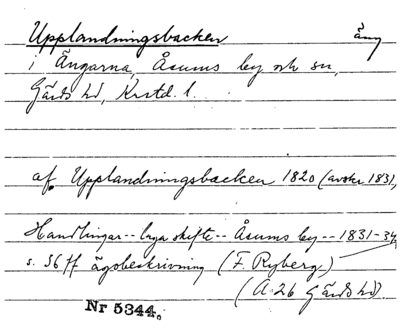 Upplandningsbacken äng
i Ängarna, Åsums by och sn,
Gärds hd, Krstd. l.
af Upplandningsbacken 1820 (avskr 1831,
Handlingar -- laga skifte -- Åsums by -- 1831-34
s. 56 ff ägobeskrivning (F. Ryberg)
(A. 26 Gärds hd)
Nr 5344.